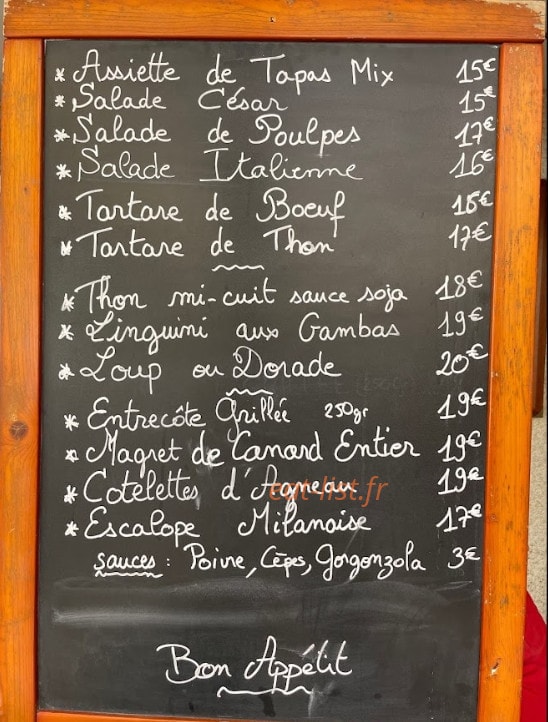 * Assiette de Tapas Mix 15€
* Salade César 15€
* Salade de Poulpes 17€
* Salade Italienne 16€
* Tartare de Boeuf 16€
* Tartare de Thon 17€
* Thon mi-cuit sauce soja 18€
* Linguini aux Gambas 19€
* Loup ou Dorade 20€
* Entrecôte Grillée 250gr 19€
* Magret de Canard Entier 19€
* Cotelettes d'Agneau 19€
eat-list.fr
* Escalope Milanaise 17€
sauces : Poivre, Cèpes, Gorgonzola 3€
Bon Appétit